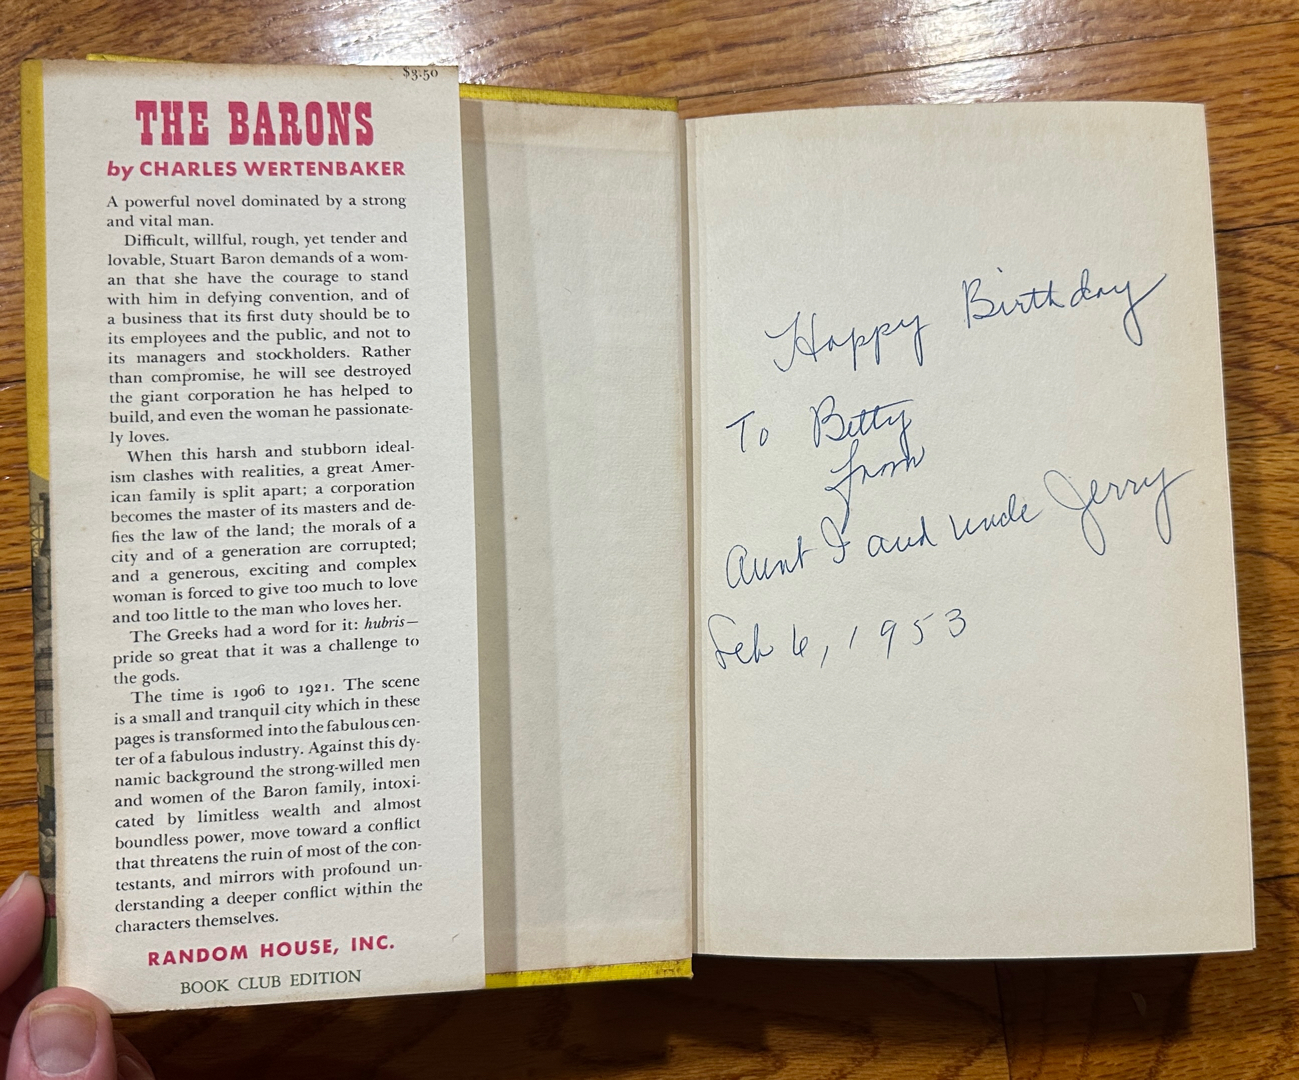 $3.50
THE BARONS
by CHARLES WERTENBAKER
A powerful novel dominated by a strong
and vital man.
Difficult, willful, rough, yet tender and
lovable, Stuart Baron demands of a wom-
an that she have the courage to stand
with him in defying convention, and of
a business that its first duty should be to
its employees and the public, and not to
its managers and stockholders. Rather
than compromise, he will see destroyed
the giant corporation he has helped to
build, and even the woman he passionate-
ly loves.
When this harsh and stubborn ideal-
ism clashes with realities, a great Amer-
ican family is split apart; a corporation
becomes the master of its masters and de-
fies the law of the land; the morals of a
city and of a generation are corrupted;
and a generous, exciting and complex
woman is forced to give too much to love
and too little to the man who loves her.
The Greeks had a word for it: hubris—
pride so great that it was a challenge to
the gods.
The time is 1906 to 1921. The scene
is a small and tranquil city which in these
pages is transformed into the fabulous cen-
ter of a fabulous industry. Against this dy-
namic background the strong-willed men
and women of the Baron family, intoxi-
cated by limitless wealth and almost
boundless power, move toward a conflict
that threatens the ruin of most of the con-
testants, and mirrors with profound un-
derstanding a deeper conflict within the
characters themselves.
RANDOM HOUSE, INC.
BOOK CLUB EDITION
Happy Birthday
To Betty
from
Aunt I and uncle Jerry
Feb 6, 1953